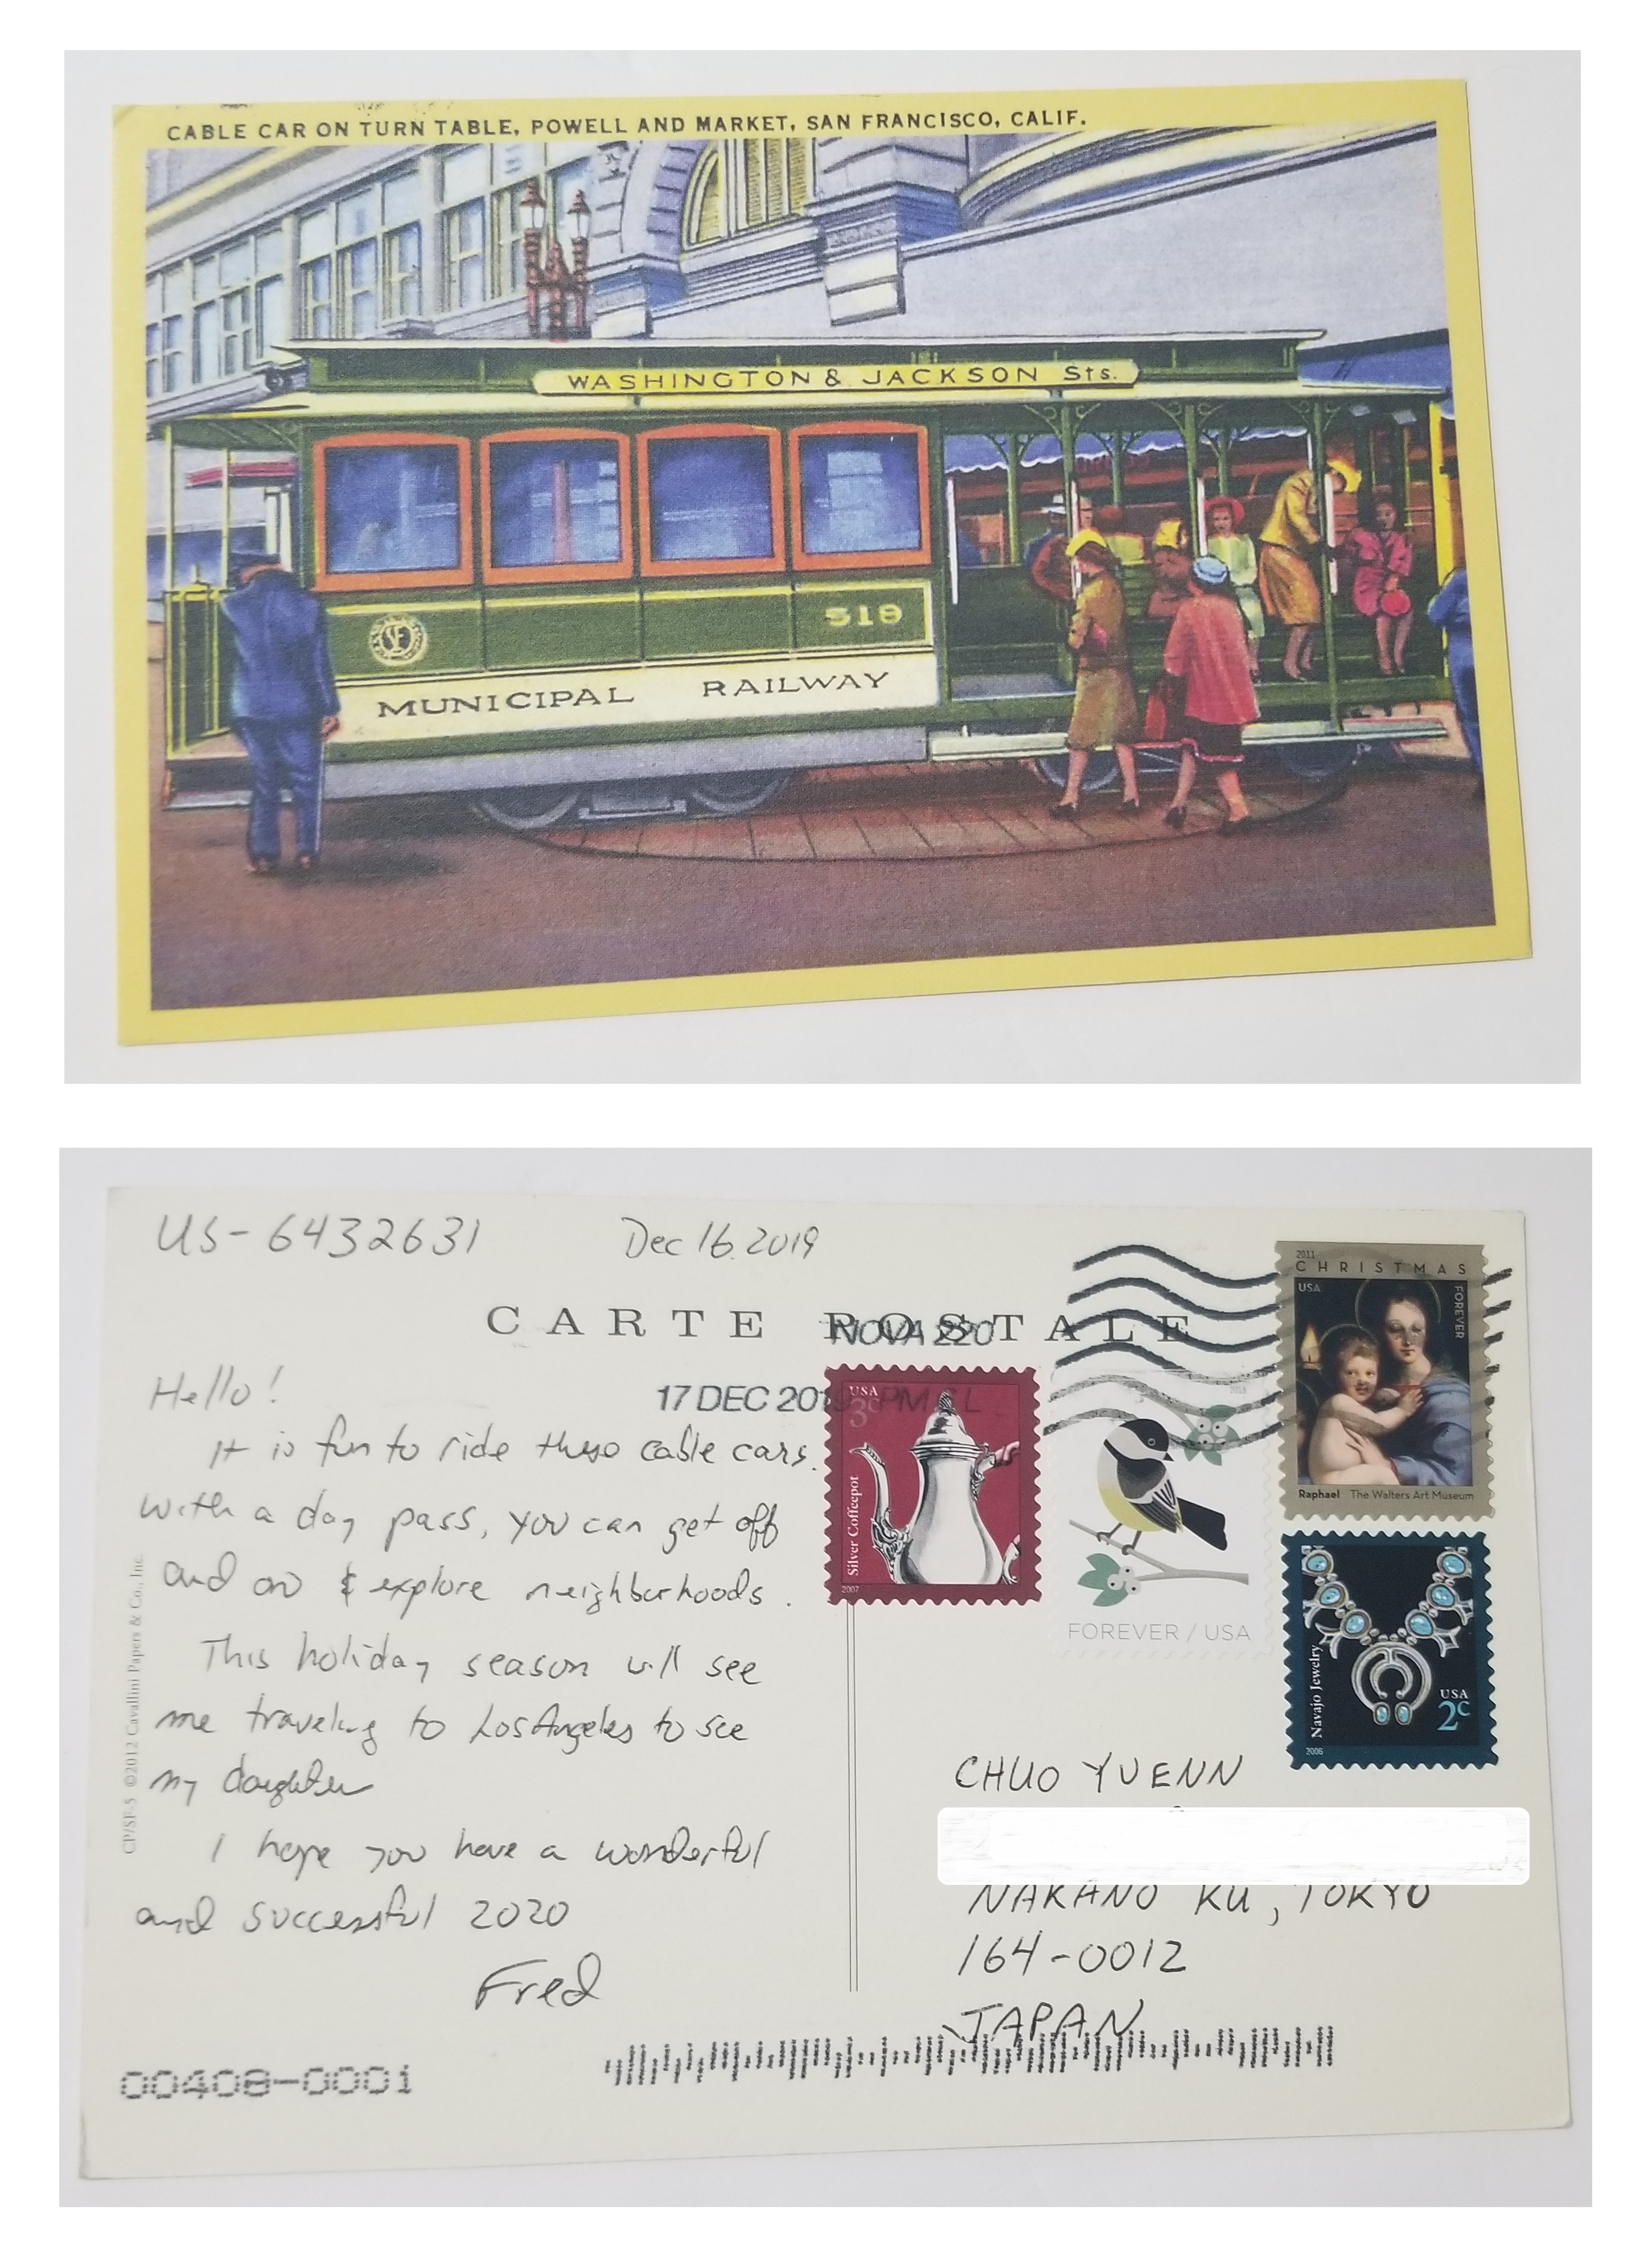 CABLE CAR ON TURN TABLE, POWELL AND MARKET, SAN FRANCISCO, CALIF.
WASHINGTON & JACKSON Sts.
518
SF
MUNICIPAL RAILWAY
US-6432631
Dec 16. 2019
CARTE POSTALE
NOVA 220
17 DEC 2019 PM L
Hello!
It is fun to ride these cable cars.
With a day pass, you can get off
and on & explore neighborhoods.
This holiday season will see
me traveling to Los Angeles to see
my daughter
I hope you have a wonderful
and successful 2020
Fred
CP/SF-5 ©2012 Cavallini Papers & Co., Inc.
USA
3c
Silver Coffeepot
2007
2018
FOREVER / USA
2011
CHRISTMAS
USA
FOREVER
Raphael The Walters Art Museum
Navajo Jewelry
USA
2c
2006
CHUO YUENN
NAKANO KU, TOKYO
164-0012
JAPAN
00408-0001